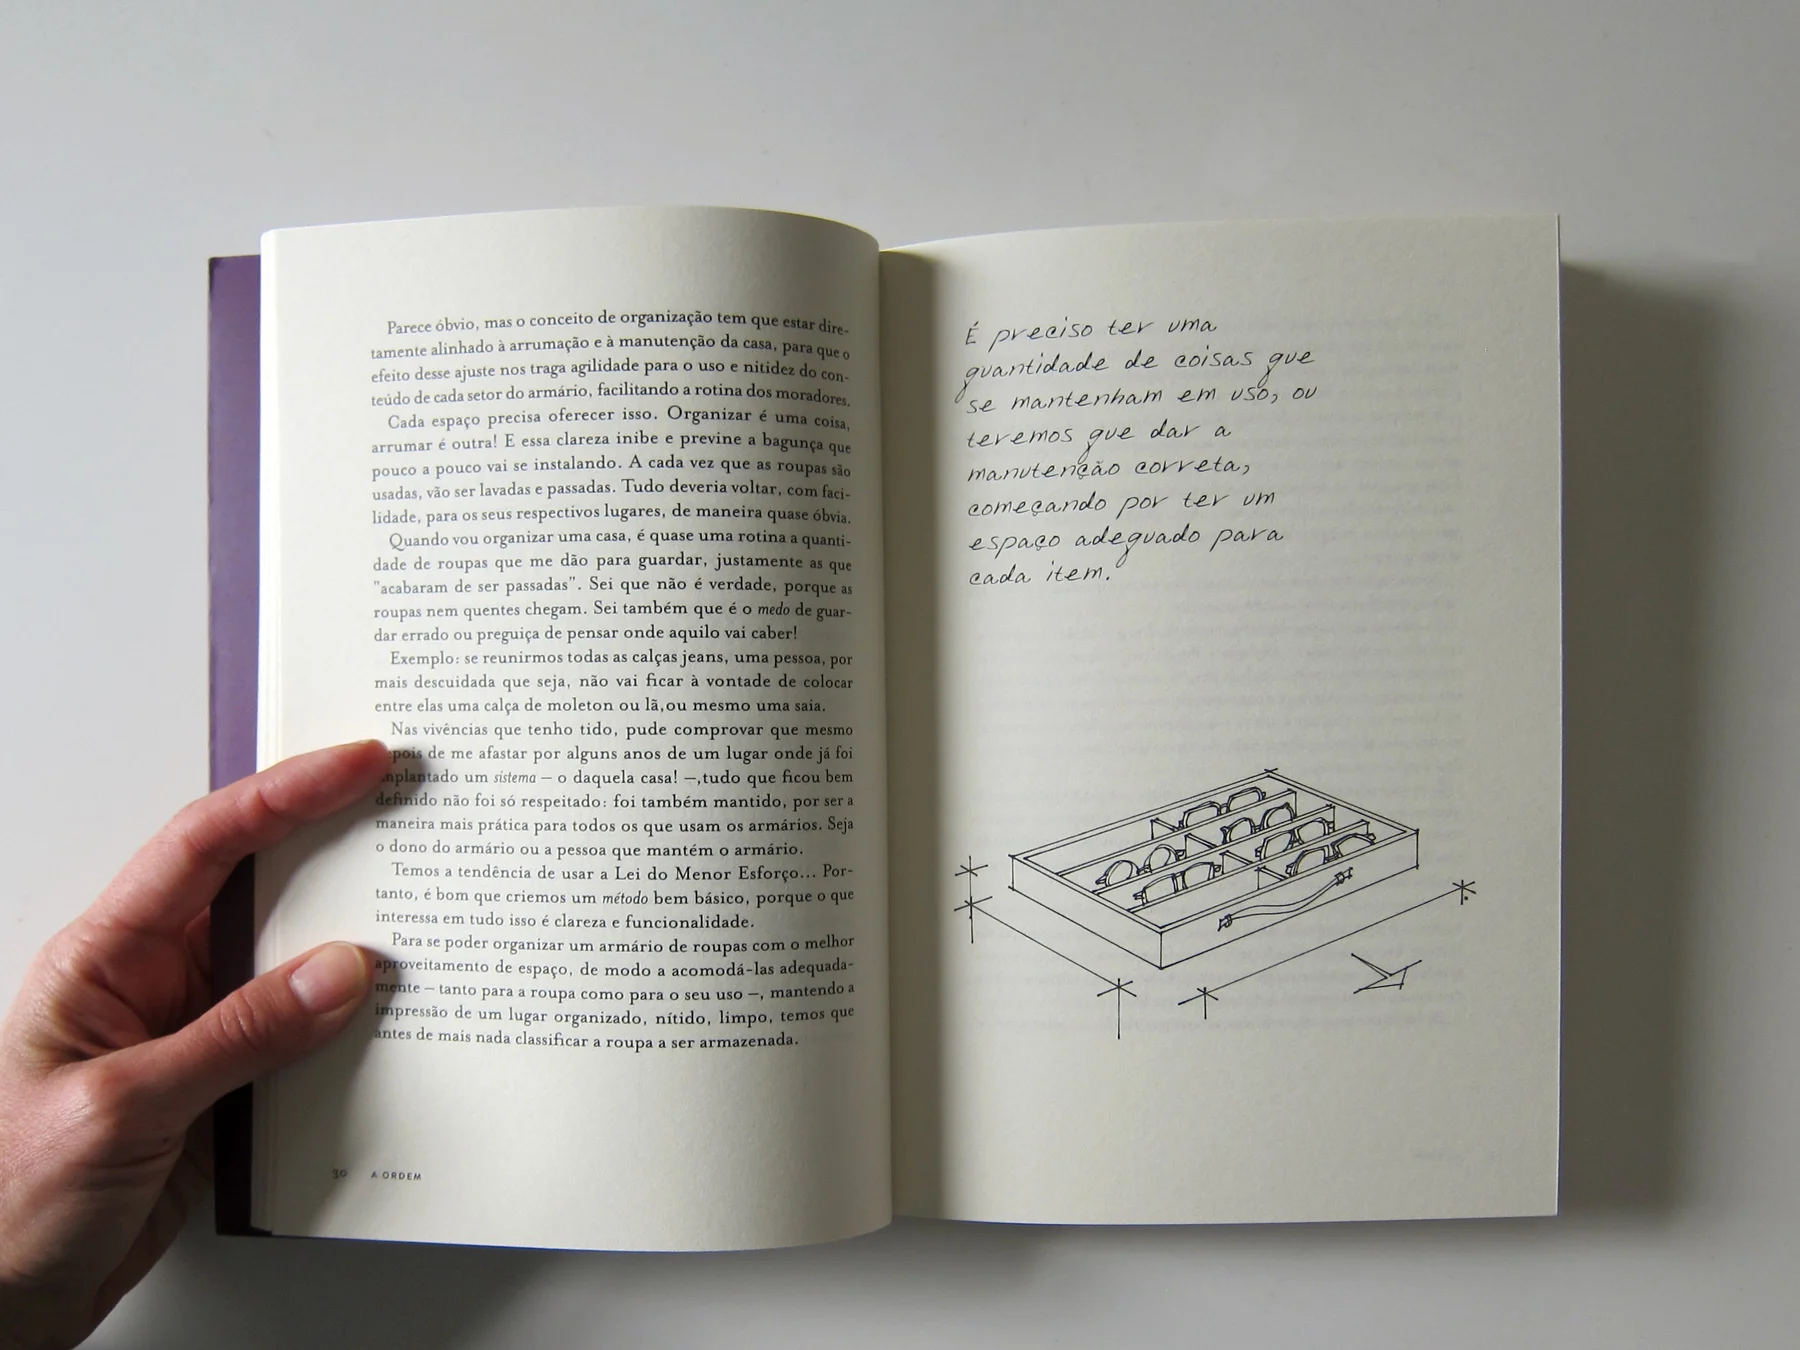 Parece óbvio, mas o conceito de organização tem que estar dire-
tamente alinhado à arrumação e à manutenção da casa, para que o
efeito desse ajuste nos traga agilidade para o uso e nitidez do con-
teúdo de cada setor do armário, facilitando a rotina dos moradores.
Cada espaço precisa oferecer isso. Organizar é uma coisa,
arrumar é outra! E essa clareza inibe e previne a bagunça que
pouco a pouco vai se instalando. A cada vez que as roupas são
usadas, vão ser lavadas e passadas. Tudo deveria voltar, com faci-
lidade, para os seus respectivos lugares, de maneira quase óbvia.
Quando vou organizar uma casa, é quase uma rotina a quanti-
dade de roupas que me dão para guardar, justamente as que
"acabaram de ser passadas". Sei que não é verdade, porque as
roupas nem quentes chegam. Sei também que é o medo de guar-
dar errado ou preguiça de pensar onde aquilo vai caber!
Exemplo: se reunirmos todas as calças jeans, uma pessoa, por
mais descuidada que seja, não vai ficar à vontade de colocar
entre elas uma calça de moleton ou lã,ou mesmo uma saia.
Nas vivências que tenho tido, pude comprovar que mesmo
depois de me afastar por alguns anos de um lugar onde já foi
implantado um sistema – o daquela casa! –,tudo que ficou bem
definido não foi só respeitado: foi também mantido, por ser a
maneira mais prática para todos os que usam os armários. Seja
o dono do armário ou a pessoa que mantém o armário.
Temos a tendência de usar a Lei do Menor Esforço... Por-
tanto, é bom que criemos um método bem básico, porque o que
interessa em tudo isso é clareza e funcionalidade.
Para se poder organizar um armário de roupas com o melhor
aproveitamento de espaço, de modo a acomodá-las adequada-
mente – tanto para a roupa como para o seu uso –, mantendo a
impressão de um lugar organizado, nítido, limpo, temos que
antes de mais nada classificar a roupa a ser armazenada.
30 A ORDEM
É preciso ter uma
quantidade de coisas que
se mantenham em uso, ou
teremos que dar a
manutenção correta,
começando por ter um
espaço adequado para
cada item.